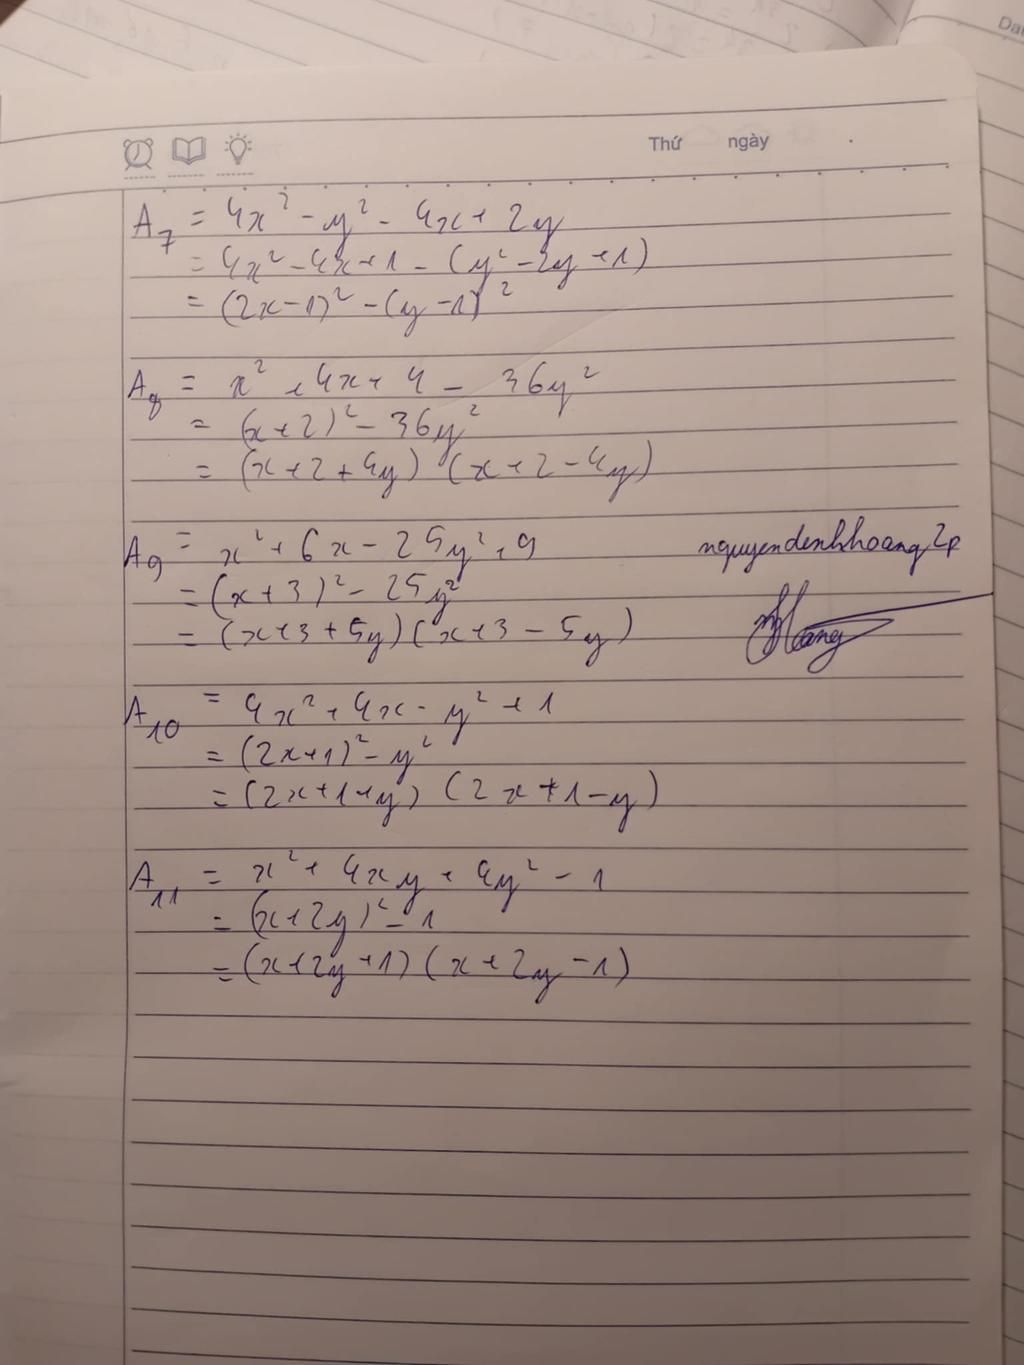 Dat
Thứ ngày .
A₇ = 4x² - y² - 4x + 2y
= 4x² - 4x + 1 - (y² - 2y + 1)
= (2x - 1)² - (y - 1)²
A₈ = x² + 4x + 4 - 36y²
= (x + 2)² - 36y²
= (x + 2 + 4y) (x + 2 - 4y)
A₉ = x² + 6x - 25y² + 9
= (x + 3)² - 25y²
= (x + 3 + 5y) (x + 3 - 5y)
nguyendenhhoang2p
Hoang
A₁₀ = 4x² + 4x - y² + 1
= (2x + 1)² - y²
= (2x + 1 + y) (2x + 1 - y)
A₁₁ = x² + 4xy + 4y² - 1
= (x + 2y)² - 1
= (x + 2y + 1) (x + 2y - 1)